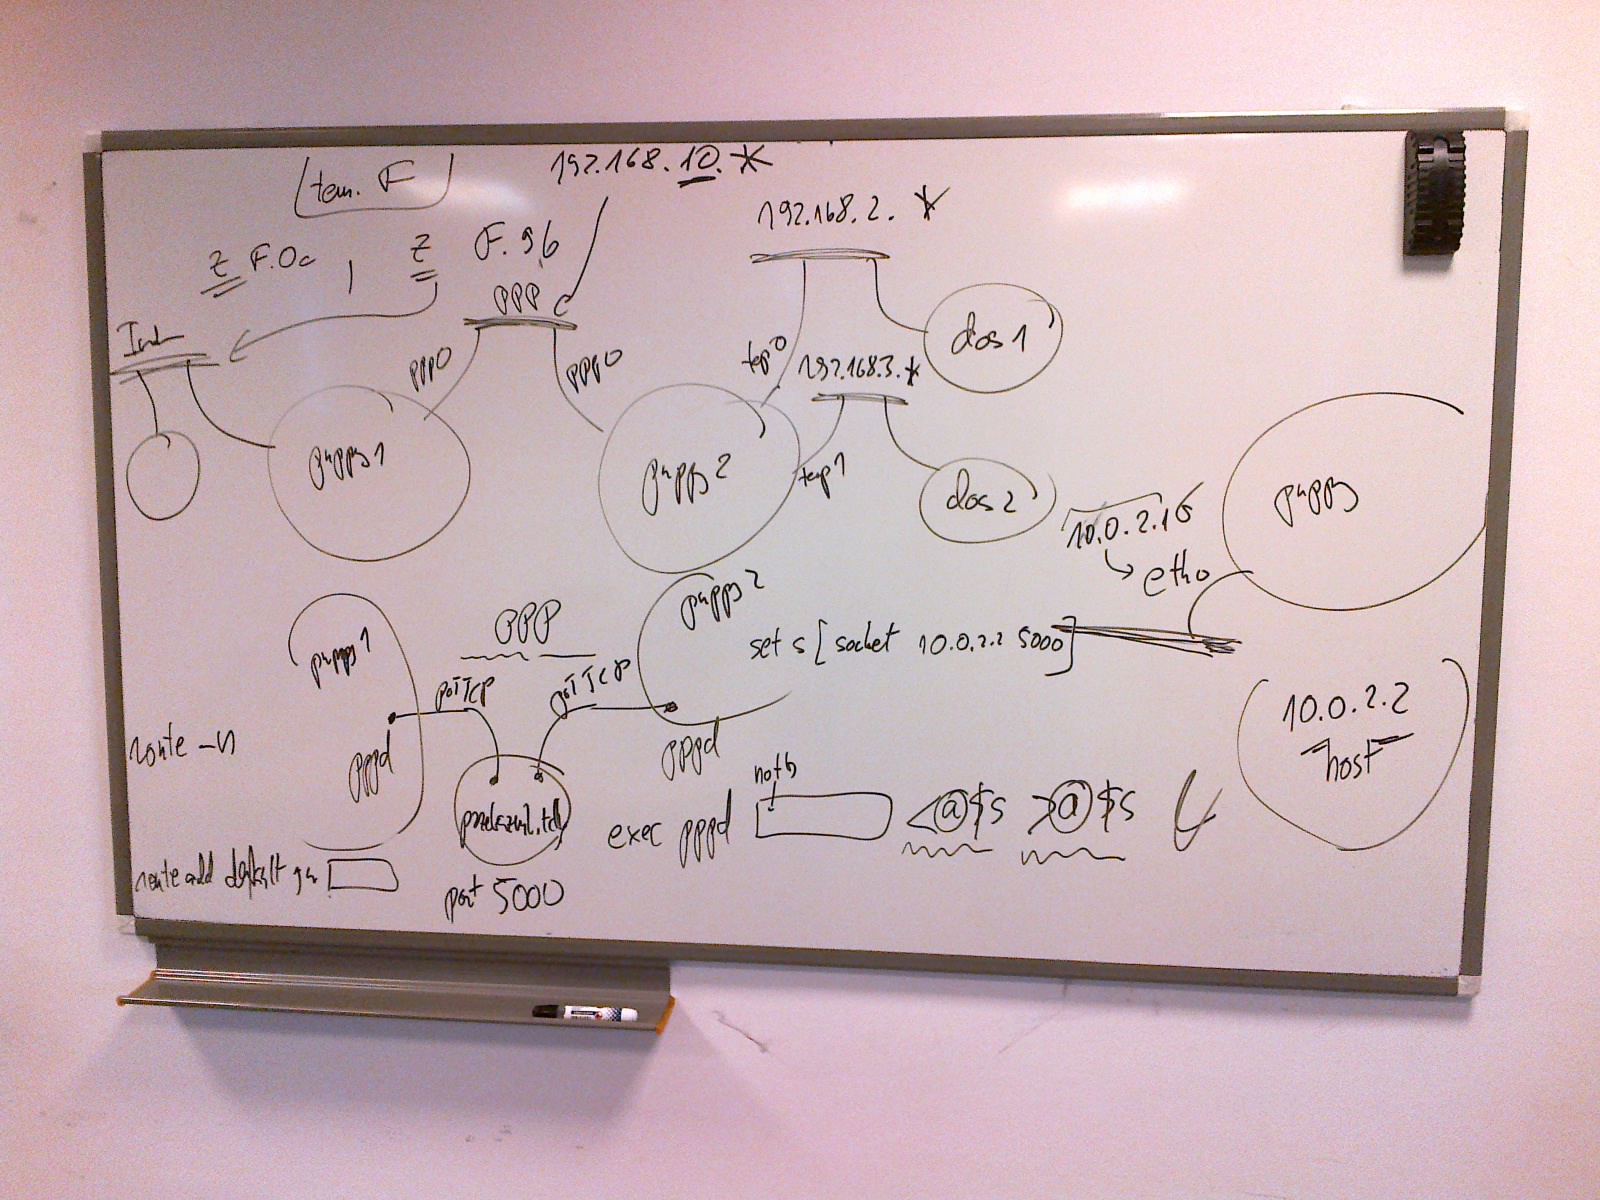 tem. F
192.168.10.*
192.168.2. *
Z F.0c
Z F.96
PPP
ppp0
ppp0
tap0
192.168.3.*
dos 1
puppy 1
puppy 2
tap1
dos 2
10.0.2.16
eth0
puppy
puppy 1
PPP
poTTCP
poTTCP
puppy 2
set s [socket 10.0.2.2 5000]
10.0.2.2
host
route -n
pppd
pppd
port 5000
exec pppd
noth
<@$s >@$s
route add default gw